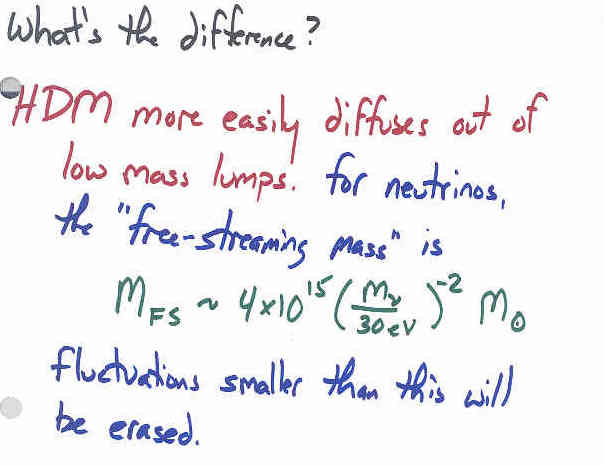 What's the difference?
HDM more easily diffuses out of
low mass lumps. for neutrinos,
the "free-streaming mass" is
M_FS ~ 4x10^15 (m_ν / 30 eV)^-2 M_⊙
fluctuations smaller than this will
be erased.